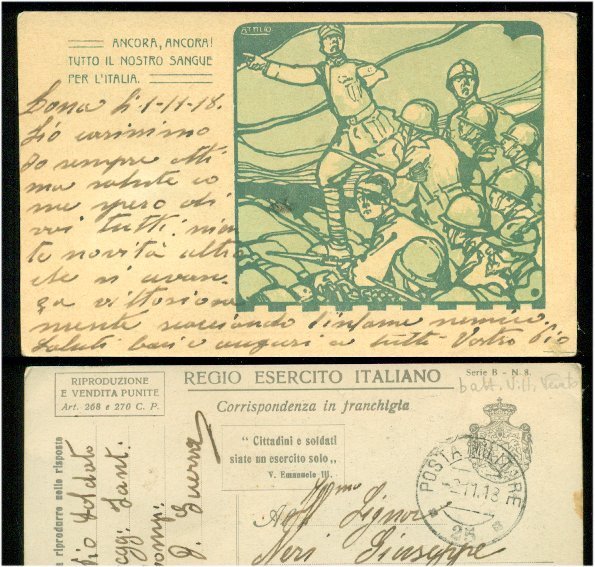 ATTILIO
ANCORA, ANCORA!
TUTTO IL NOSTRO SANGUE
PER L'ITALIA.
Zona li 1-11-18.
Zio carissimo
Io sempre otti
ma salute co
me spero di
voi tutti. nien
te novità altro
che si avan
za vittoriosa
mente scacciando l'infame nemico.
Saluti baci e auguri a tutti. Vostro Pio
REGIO ESERCITO ITALIANO
Serie B - N. 8.
batt. Vitt. Veneto
RIPRODUZIONE
E VENDITA PUNITE
Art. 268 e 270 C. P.
Corrispondenza in franchigia
" Cittadini e soldati
siate un esercito solo „
V. Emanuele III.
POSTA MILITARE
-2.11.18
25
e riprodurre nella risposta
Pio Soldato
Regg. Fant.
Comp.
Z. Guerra
All' Ill.mo
Signor
Neri Giuseppe